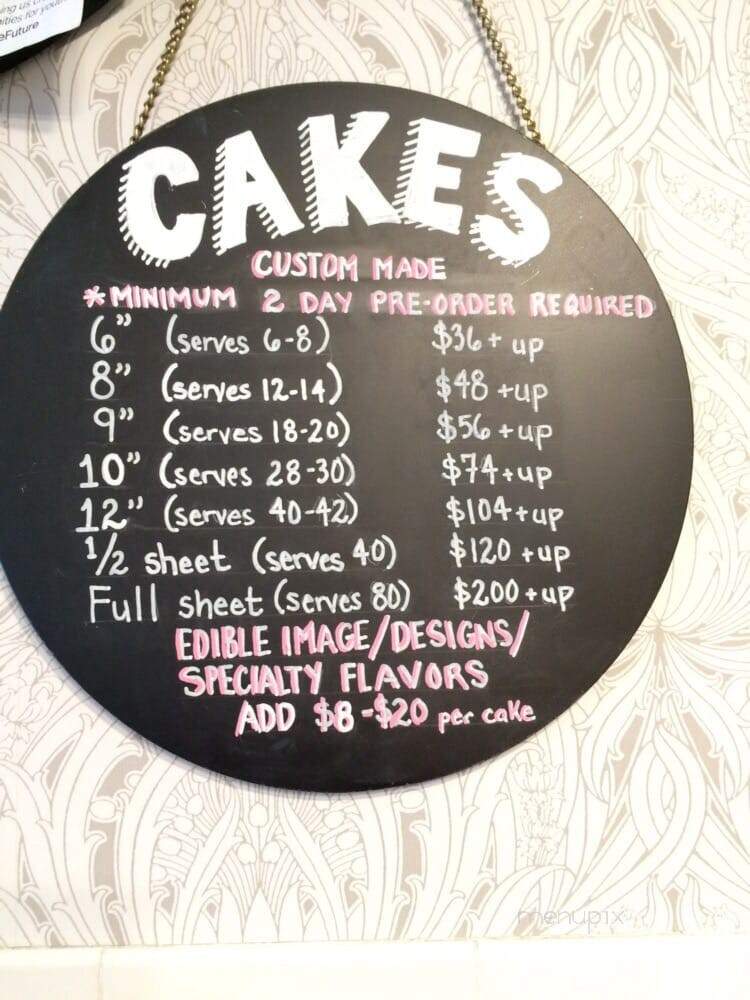 eFuture
CAKES
CUSTOM MADE
*MINIMUM 2 DAY PRE-ORDER REQUIRED
6" (serves 6-8) $36+ up
8" (serves 12-14) $48 +up
9" (serves 18-20) $56 +up
10" (serves 28-30) $74+up
12" (serves 40-42) $104+up
1/2 sheet (serves 40) $120 +up
Full sheet (serves 80) $200+up
EDIBLE IMAGE/DESIGNS/
SPECIALTY FLAVORS
ADD $8-$20 per cake
menupix